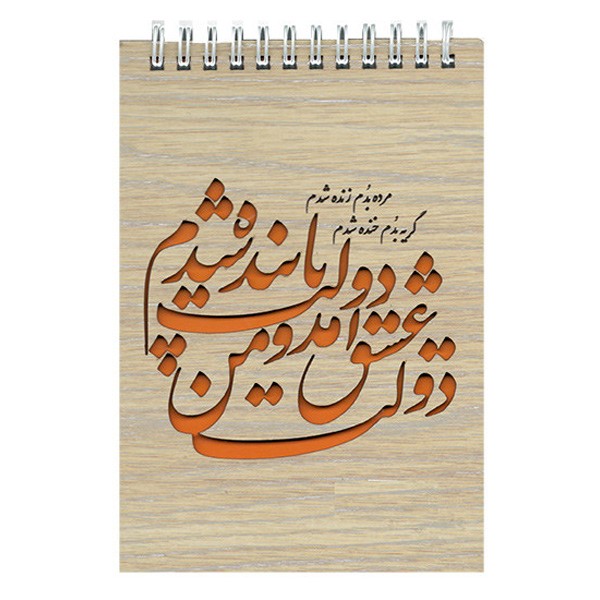 مرده بُدم زنده شدم
گریه بُدم خنده شدم
دولت عشق آمد و من
دولت پاینده شدم